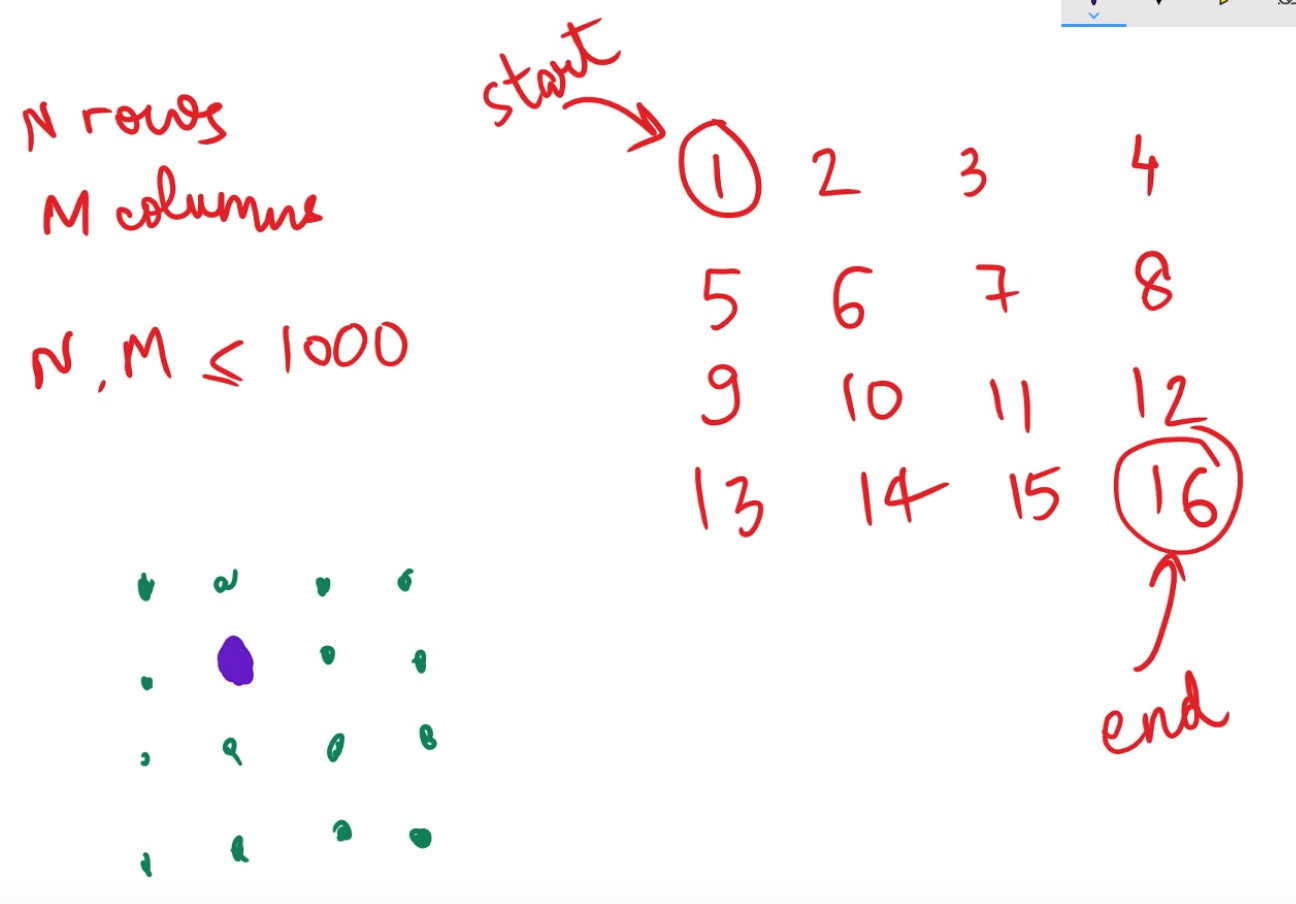 start
N rows
M columns
N, M ≤ 1000
1 2 3 4
5 6 7 8
9 10 11 12
13 14 15 16
end